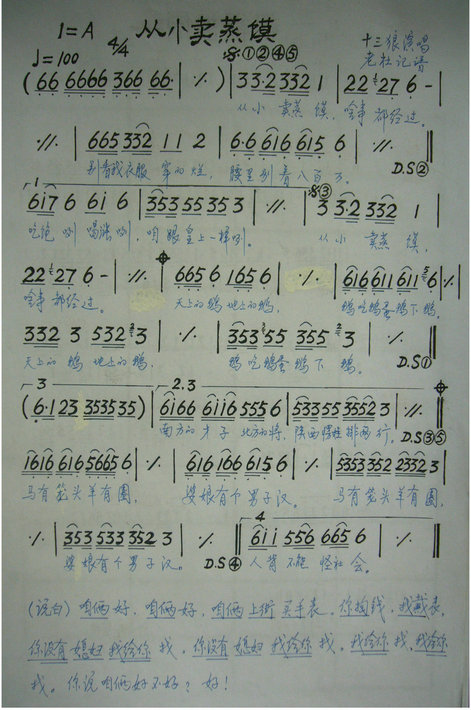 从小卖蒸馍
1=A 4/4 𝄋①②④⑤ 十三狼演唱
♩=100 老杜记谱
( 66 6666 366 66· | ٪ ) | 33·2 332 1 | 22 27 6 - |
从小 卖蒸 馍, 啥事 都经过。
·//· | 665 332 11 2 | 6·6 616 615 6 | ·//· ||
别看我衣服 穿的烂, 腰里别着八百万, D.S②
1 𝄋③
617 6 61 6 | 353 55 35 3 | ·//· | 3 33·2 332 1 |
吃饱 咧 喝涨咧, 咱跟皇上一样咧。 从小 卖蒸 馍,
22 27 6 - | ٪ | 665 6 165 6 | ٪ | 616 611 611 6 |
啥事 都经过。 天上的鹅 地上的鹅, 鹅吃鹅蛋鹅下鹅。
332 3 532 3 | ٪ | 353 55 355 3 | ٪ ||
天上的鹅 地上的鹅, 鹅吃鹅蛋鹅下 鹅。 D.S①
3 2.3
( 6·1 23 3535 35 ) | 6166 6116 555 6 | 533 55 3552 3 | ·//· ||
南方的才子 北方的将, 陕西 排两行。 D.S③⑤
1616 616 5665 6 | ٪ | 616 166 615 6 | ٪ | 5353 352 2332 3 |
马有笼头羊有圈, 婆娘有个男子汉。 马有笼头羊有圈,
٪ | 353 533 352 3 | ٪ || 4 611 556 665 6 | ٪ |
婆娘有个男子汉。 D.S④ 人背不能 怪社会。
(说白) 咱俩好, 咱俩好, 咱俩上街买手表。你掏钱, 我戴表,
你没有媳妇我给你 找。你没有媳妇 我给你 找。我给你 找, 我给你
找。你说咱俩好不好? 好!